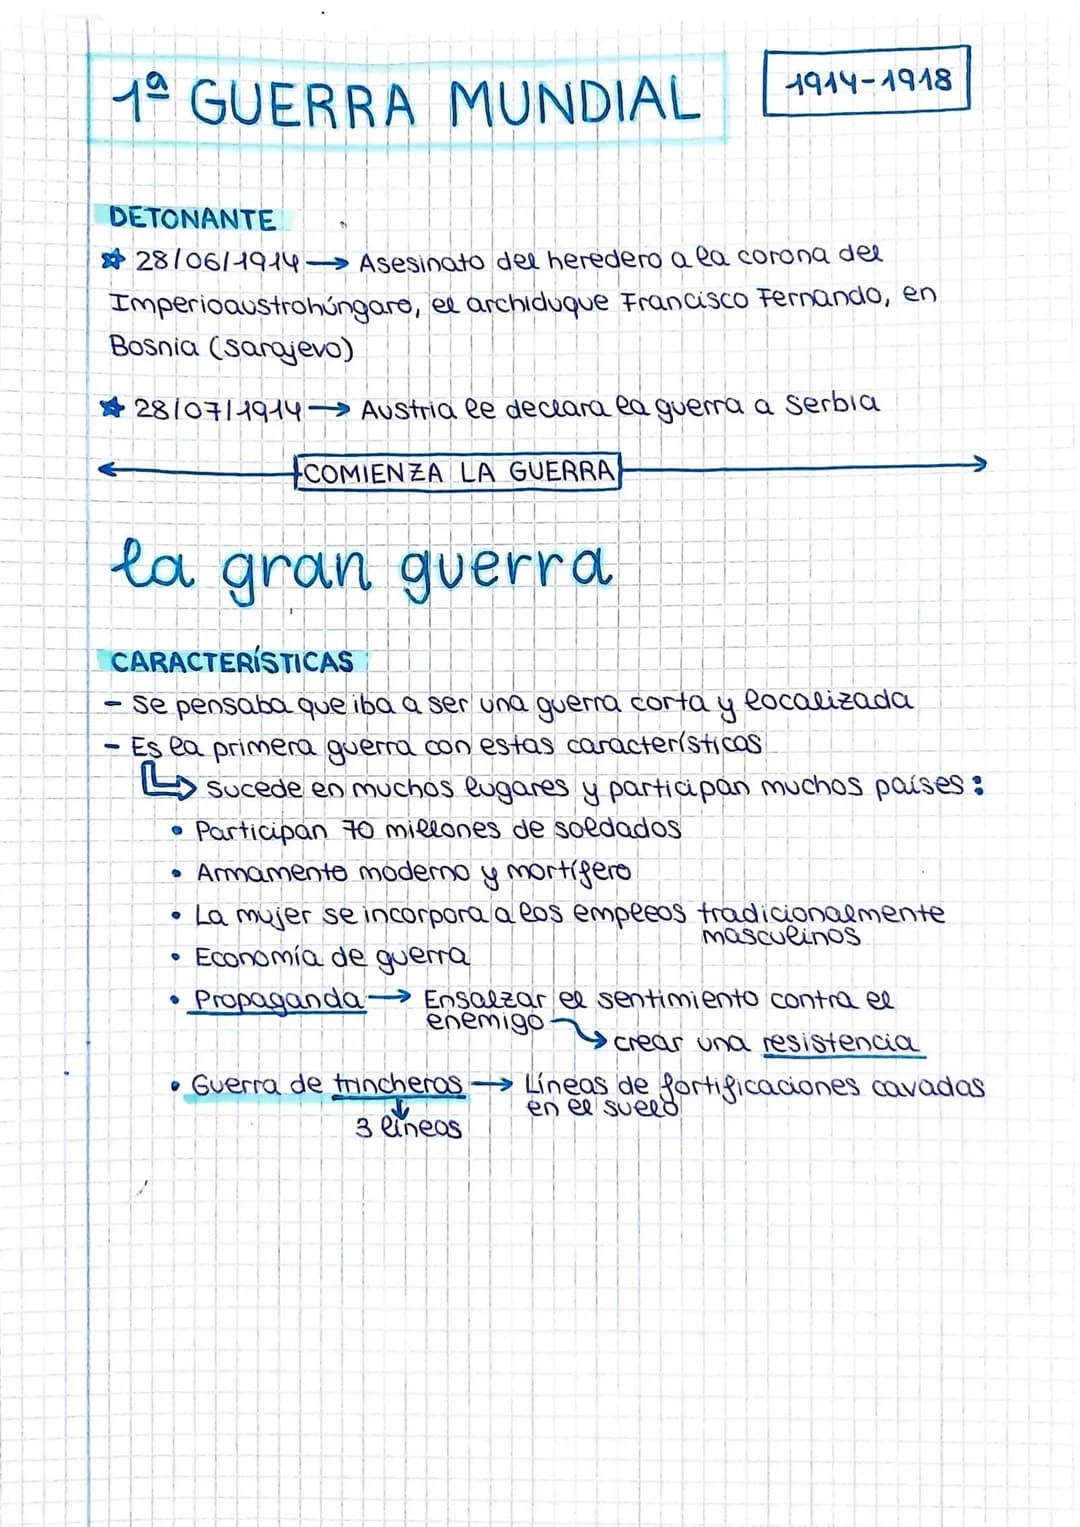 1ª GUERRA MUNDIAL
1914-1918
DETONANTE
☆ 28/06/1914 → Asesinato del heredero a la corona del
Imperioaustrohúngaro, el archiduque Francisco Fernando, en
Bosnia (Sarajevo)
☆ 28/07/1914 → Austria le declara la guerra a Serbia
COMIENZA LA GUERRA
la gran guerra
CARACTERÍSTICAS
- Se pensaba que iba a ser una guerra corta y localizada
- Es la primera guerra con estas características
↳ Sucede en muchos lugares y participan muchos países:
• Participan 70 millones de soldados
• Armamento moderno y mortífero
• La mujer se incorpora a los empleos tradicionalmente
masculinos
• Economía de guerra
• Propaganda → Ensalzar el sentimiento contra el
enemigo
→ crear una resistencia
• Guerra de trincheras → Líneas de fortificaciones cavadas
en el suelo
3 líneas